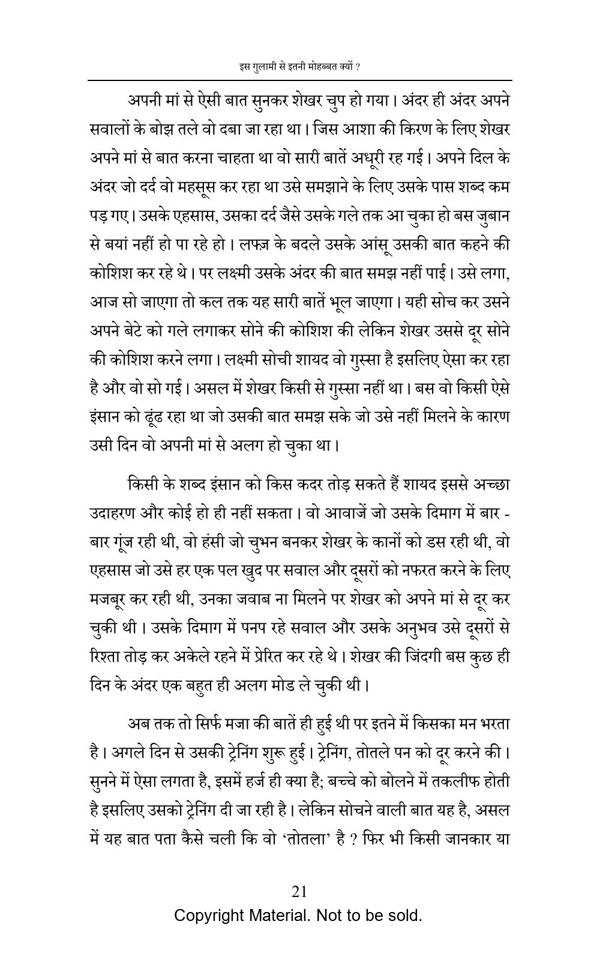 इस गुलामी से इतनी मोहब्बत क्यों ?
अपनी मां से ऐसी बात सुनकर शेखर चुप हो गया । अंदर ही अंदर अपने
सवालों के बोझ तले वो दबा जा रहा था । जिस आशा की किरण के लिए शेखर
अपने मां से बात करना चाहता था वो सारी बातें अधूरी रह गई । अपने दिल के
अंदर जो दर्द वो महसूस कर रहा था उसे समझाने के लिए उसके पास शब्द कम
पड़ गए । उसके एहसास, उसका दर्द जैसे उसके गले तक आ चुका हो बस जुबान
से बयां नहीं हो पा रहे हो । लफ्ज़ के बदले उसके आंसू उसकी बात कहने की
कोशिश कर रहे थे । पर लक्ष्मी उसके अंदर की बात समझ नहीं पाई । उसे लगा,
आज सो जाएगा तो कल तक यह सारी बातें भूल जाएगा । यही सोच कर उसने
अपने बेटे को गले लगाकर सोने की कोशिश की लेकिन शेखर उससे दूर सोने
की कोशिश करने लगा । लक्ष्मी सोची शायद वो गुस्सा है इसलिए ऐसा कर रहा
है और वो सो गई । असल में शेखर किसी से गुस्सा नहीं था । बस वो किसी ऐसे
इंसान को ढूंढ रहा था जो उसकी बात समझ सके जो उसे नहीं मिलने के कारण
उसी दिन वो अपनी मां से अलग हो चुका था ।
किसी के शब्द इंसान को किस कदर तोड़ सकते हैं शायद इससे अच्छा
उदाहरण और कोई हो ही नहीं सकता । वो आवाजें जो उसके दिमाग में बार -
बार गूंज रही थी, वो हंसी जो चुभन बनकर शेखर के कानों को डस रही थी, वो
एहसास जो उसे हर एक पल खुद पर सवाल और दूसरों को नफरत करने के लिए
मजबूर कर रही थी, उनका जवाब ना मिलने पर शेखर को अपने मां से दूर कर
चुकी थी । उसके दिमाग में पनप रहे सवाल और उसके अनुभव उसे दूसरों से
रिश्ता तोड़ कर अकेले रहने में प्रेरित कर रहे थे । शेखर की जिंदगी बस कुछ ही
दिन के अंदर एक बहुत ही अलग मोड ले चुकी थी ।
अब तक तो सिर्फ मजा की बातें ही हुई थी पर इतने में किसका मन भरता
है । अगले दिन से उसकी ट्रेनिंग शुरू हुई । ट्रेनिंग, तोतले पन को दूर करने की ।
सुनने में ऐसा लगता है, इसमें हर्ज ही क्या है; बच्चे को बोलने में तकलीफ होती
है इसलिए उसको ट्रेनिंग दी जा रही है । लेकिन सोचने वाली बात यह है, असल
में यह बात पता कैसे चली कि वो ‘तोतला’ है ? फिर भी किसी जानकार या
21
Copyright Material. Not to be sold.